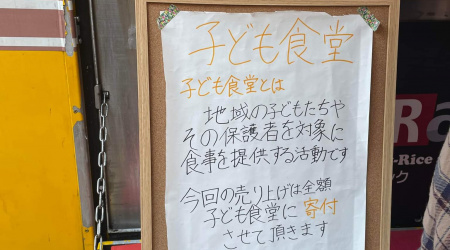 子ども食堂
子ども食堂とは
地域の子どもたちや
その保護者を対象に
食事を提供する活動です
今回の売り上げは全額
子ども食堂に寄付
させて頂きます
Ra
-Rice
ック